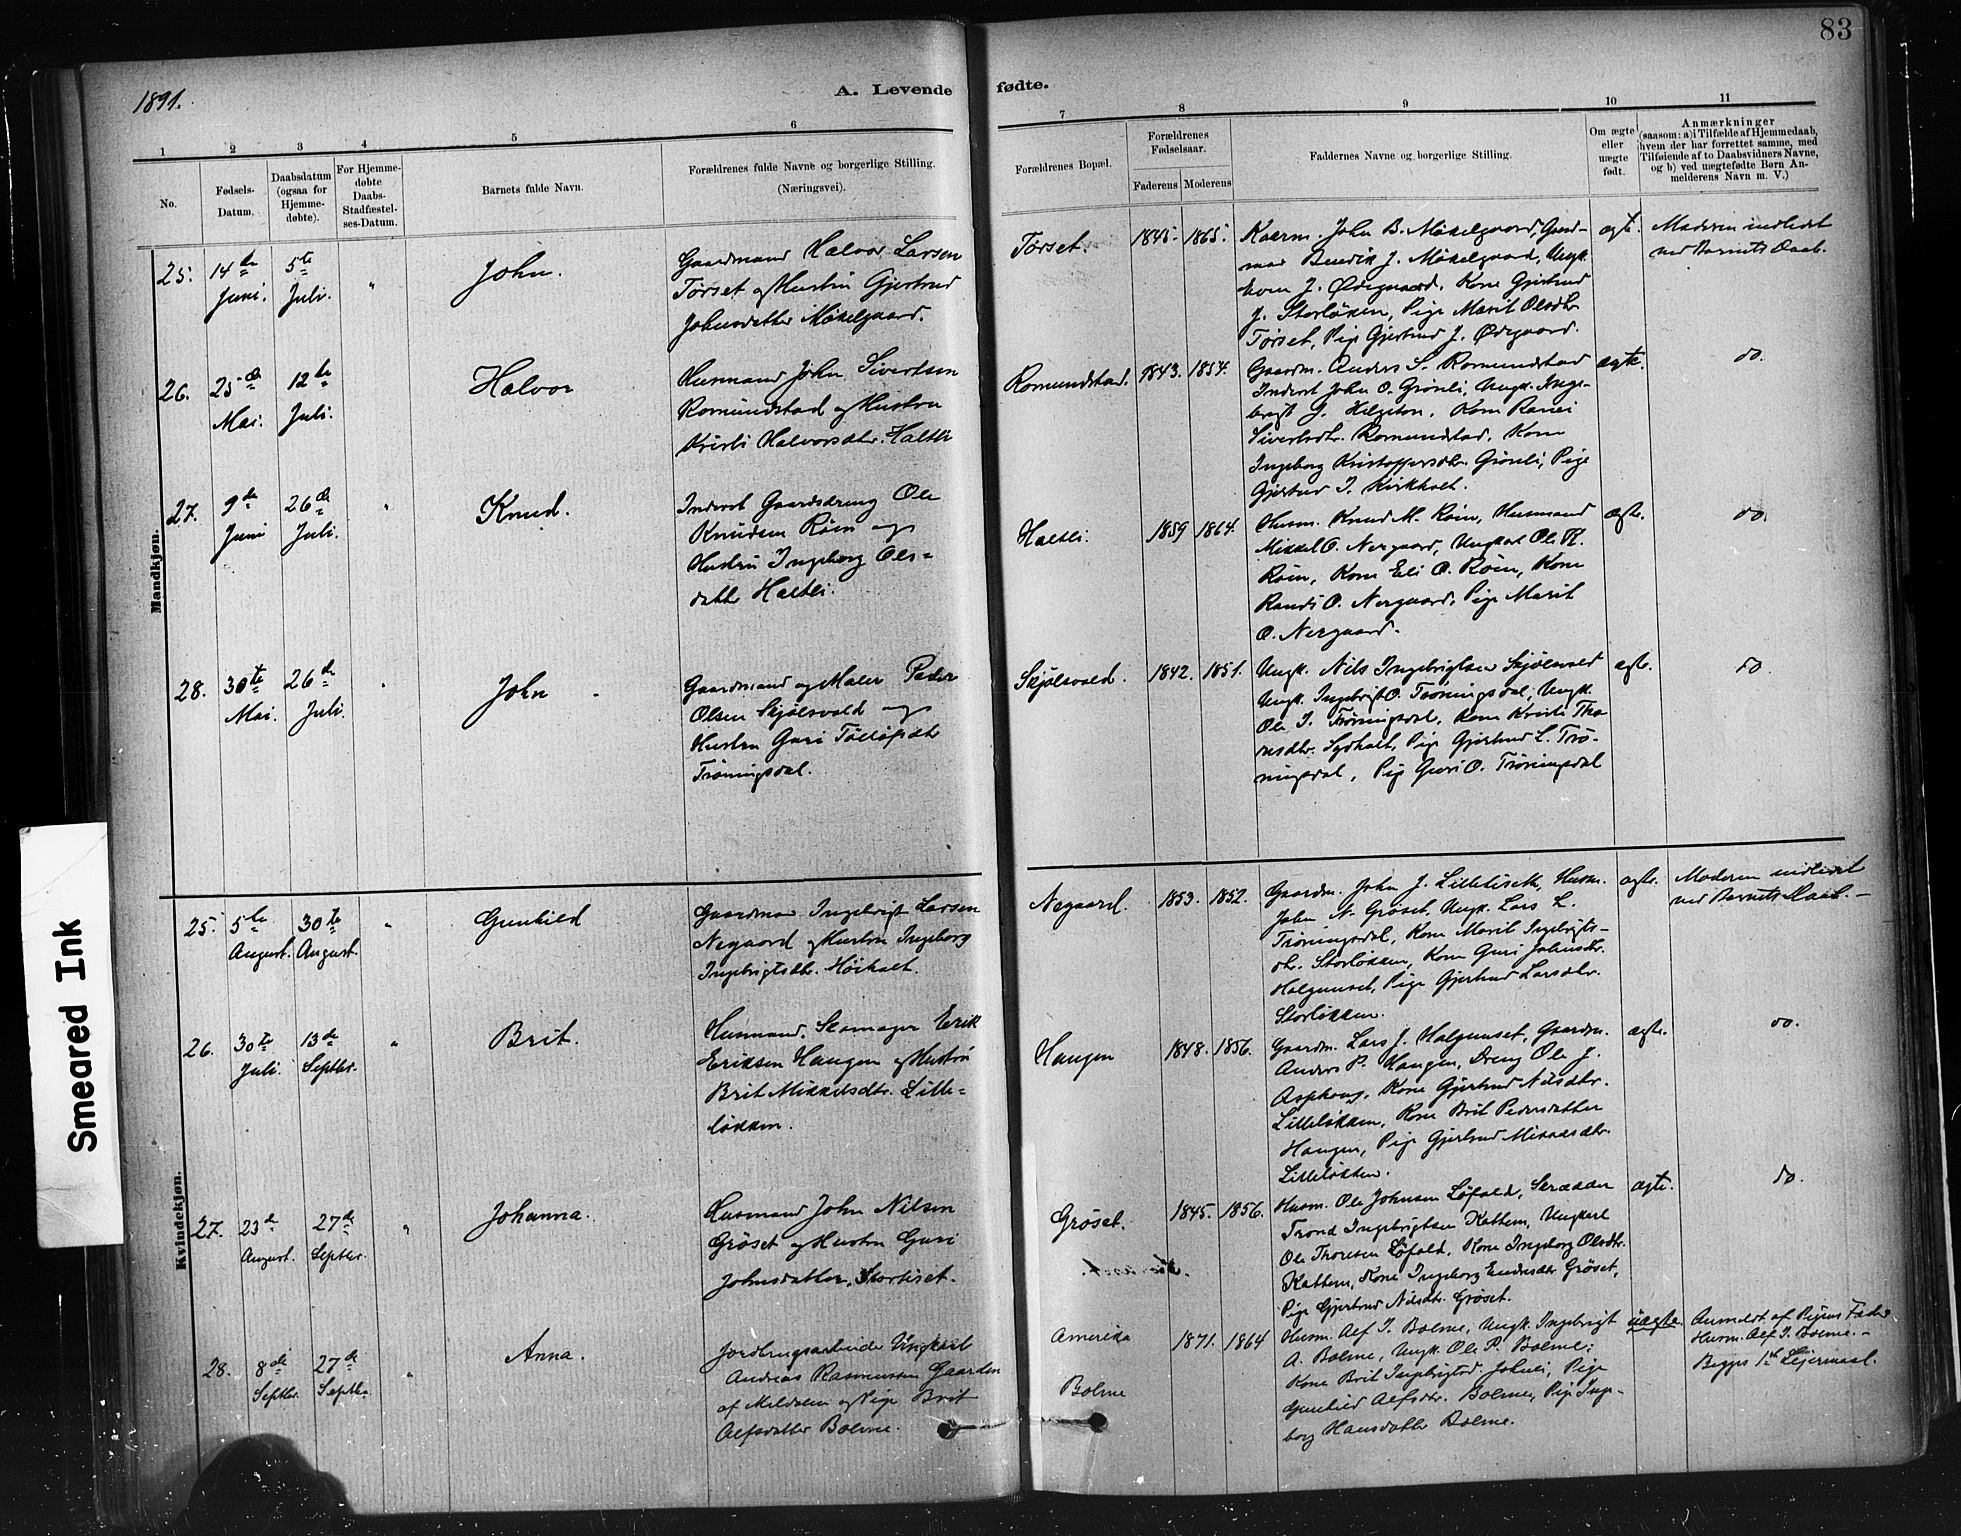 83
1891.
A. Levende fødte.
1 2 3 4 5 6 7 8 9 10 11
No.
Fødsels-
Datum.
Daabsdatum
(ogsaa for
Hjemme-
døbte).
For Hjemme-
døbte
Daabs-
Stadfæstel-
ses-Datum.
Barnets fulde Navn.
Forældrenes fulde Navne og borgerlige Stilling.
(Næringsvei).
Forældrenes Bopæl.
Forældrenes
Fødselsaar.
Faderens Moderens
Faddernes Navne og borgerlige Stilling.
Om ægte
eller
uægte
født.
Anmærkninger
(saasom: a) i Tilfælde af Hjemmedaab,
hvem der har forrettet samme, med
Tilføiende af to Daabsvidners Navne,
og b) ved uægtefødte Børn An-
melderens Navn m. V.)
Mandkjøn.
25. 14de Juni. 5te Juli. " John.
Gaardmand Halvor Larsen
Tørset og Hustru Gjertrud
Johnsdatter Møkelgaard.
Tørset. 1845. 1865.
John B. Møkelgaard, Gaard-
mand Bendik J. Møkelgaard, Ungk.
Even J. Ødegaard, Kone Gjertrud
J. Storløkken, Pige Marit Olsdtr.
Tørset, Pige Gjertrud J. Ødegaard.
ægte.
Moderen indledet
ved Barnets Daab.
26. 25de Mai. 12te Juli. Halvor
Husmand John Sivertsen
Romundstad og Hustru
Kirsti Halvorsdtr. Haltli
Romundstad. 1843. 1854.
Gaardm. Anders S. Romundstad
Inderst John O. Grønli, Ungk. Inge-
brigt J. Helgeton, Kone Ranei
Sivertsdtr. Romundstad, Kone
Ingeborg Kristoffersdtr. Grønli, Pige
Gjertrud I. Kirkholt.
ægte.
do.
27. 9de Juni 26de Juli. " Knud.
Inderst Gaardsdreng Ole
Knudsen Røen og
Hustru Ingeborg Ols-
datter Haltli.
Haltli. 1859 1864.
Husm. Knud M. Røen, Husmand
Mikkel O. Nergaard, Ungkarl Ole K.
Røen, Kone Eli O. Røen, Kone
Randi O. Nergaard, Pige Marit
O. Nergaard.
ægte.
do.
28. 30te Mai. 26de Juli. " John
Gaardmand og Maler Peder
Olsen Skjølsvold og
Hustru Guri Tølløfsdtr
Trøningsdal.
Skjølsvold. 1842. 1851.
Ungk. Nils Ingebrigtsen Skjølsvold
Ungk. Ingebrigt O. Trøningsdal, Ungk.
Ole I. Trøningsdal, Kone Kristi Tho-
masdtr. Sydhalt, Pige Gjertrud L. Trø-
ningsdal, Pige Guri O. Trøningsdal
ægte.
do
Kvindekjøn.
25. 5te August. 30te August. " Gunhild
Gaardmand Ingebrigt Larsen
Negaard og Hustru Ingeborg
Ingebrigtsdtr. Høiholt.
Negaard. 1853. 1852.
Gaardm. John J. Lilletiseth, Husm.
John N. Grøset, Ungk. Lars L.
Trøningsdal, Kone Marit Ingebrigts-
dtr. Storløkken, Kone Guri Johnsdtr.
Halgunset, Pige Gjertrud Larsdtr.
Storløkken.
ægte.
Moderen indledet
ved Barnets Daab. -
26. 30te Juli. 13de Septbr. " Brit.
Husmand, Skomager Erik
Eriksen Haugen og Hustru
Brit Mikkelsdtr. Lille-
løkken.
Haugen 1848. 1856.
Gaardm. Lars J. Halgunset, Gaardm.
Anders P. Haugen, Dreng Ole J.
Asphaug, Kone Gjertrud Nilsdtr.
Lilleløkken, Kone Brit Pedersdatter
Haugen, Pige Gjertrud Mikkelsdtr.
Lilleløkken.
ægte.
do.
27. 23de August. 27de Septbr. " Johanna.
Husmand John Nilsen
Grøset og Hustru Guri
Johnsdatter, Stortiset.
Grøset. 1845. 1856.
Husm. Ole Johnsen Løfald, Skrædder
Trond Ingebrigtsen Kattem, Ungkarl
Ole Thoresen Løfald, Kone Ingeborg Olsdtr.
Kattem, Kone Ingeborg Endresdtr Grøset,
Pige Gjertrud Nilsdtr. Grøset.
ægte.
do.
28. 8de Septbr. 27de Septbr. " Anna.
Jordbrugsarbeider Ungkarl
Andreas Rasmussen Gaarden
af Meldalen og Pige Brit
Alfsdatter Bolme.
Amerika
Bolme
1871. 1864
Husm. Alf I. Bolme, Ungk. Ingebrigt
A. Bolme, Ungk. Ole P. Bolme;
Kone Brit Ingebrigtsd. Joheli, Pige
Gunhild Alfsdtr. Bolme, Pige Inge-
borg Hansdatter Bolme.
uægte.
Anmeldt af Pigens Fader
Husm. Alf I. Bolme. -
Begges 1ste Leiermaal.
Smeared Ink